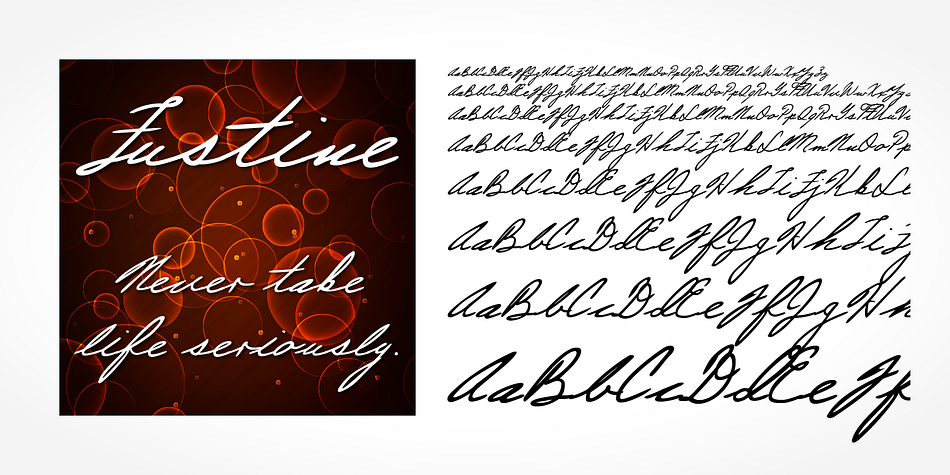 Justine
Never take
life seriously.
AaBbCcDdEeFfGgHhIiJjKkLlMmNnOoPpQqRrSsTtUuVvWwXxYyZz
AaBbCcDdEeFfGgHhIiJjKkLlMmNnOoPpQqRrSsTtUuVvWwXxYyZ
AaBbCcDdEeFfGgHhIiJjKkLlMmNnOoPpQqRrSsTtUuVv
AaBbCcDdEeFfGgHhIiJjKkLlMmNnOoPp
AaBbCcDdEeFfGgHhIiJjKkLl
AaBbCcDdEeFfGgHhIiJj
AaBbCcDdEeFfGgHh
AaBbCcDdEeFf